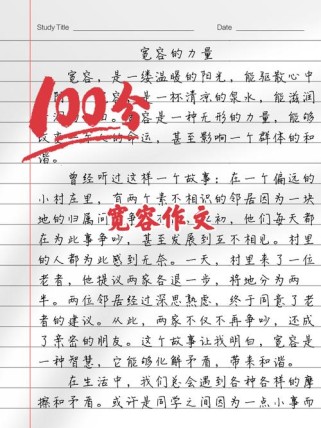 Study Title Date
宽容的力量
宽容，是一缕温暖的阳光，能驱散心中
100分
容是一杯清凉的泉水，能滋润
容是一种无形的力量，能够
人的命运，甚至影响一个群体的和
谐。
曾经听过这样一个故事：在一个偏远的
小村庄里，有两个素不相识的邻居因为一块
地的归属问 初，他们每天都
宽容作文
在为此事争吵，甚至发展到互不相见。村里
的人都为此感到无奈。一天，村里来了一位
老者，他提议两家各退一步，将地分为两
半。两位邻居经过深思熟虑，终于同意了老
者的建议。从此，两家不仅不再争吵，还成
了亲密的朋友。这个故事让我明白，宽容是
一种智慧，它能够化解矛盾，带来和谐。
在生活中，我们总会遇到各种各样的摩
擦和矛盾。或许是同学之间因为一点小事而